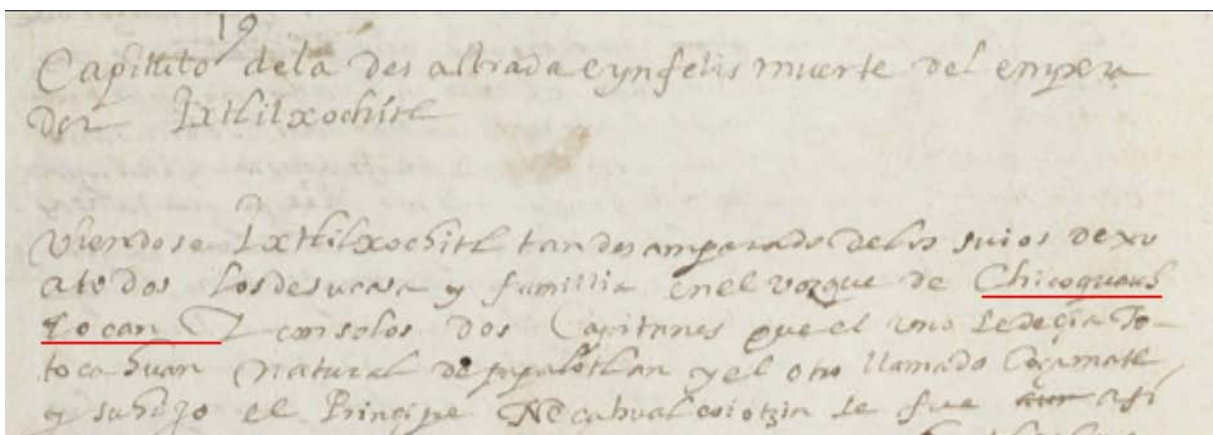 19
Capittito dela des astrada eynfelis muerte del empera
dor Ixtlilxochitl
Viendose Ixtlilxochitl tan des amparado delos suios dexo
ato dos los de su casa y familia en el vozque de Chicoquauh
tocan I con solos dos Capitanes que el uno Ledeçia To-
toca huan Natural de papalotlan y el otro llamado Coçamatl
y su hijo el Principe Neçahualcoiotzin se fue